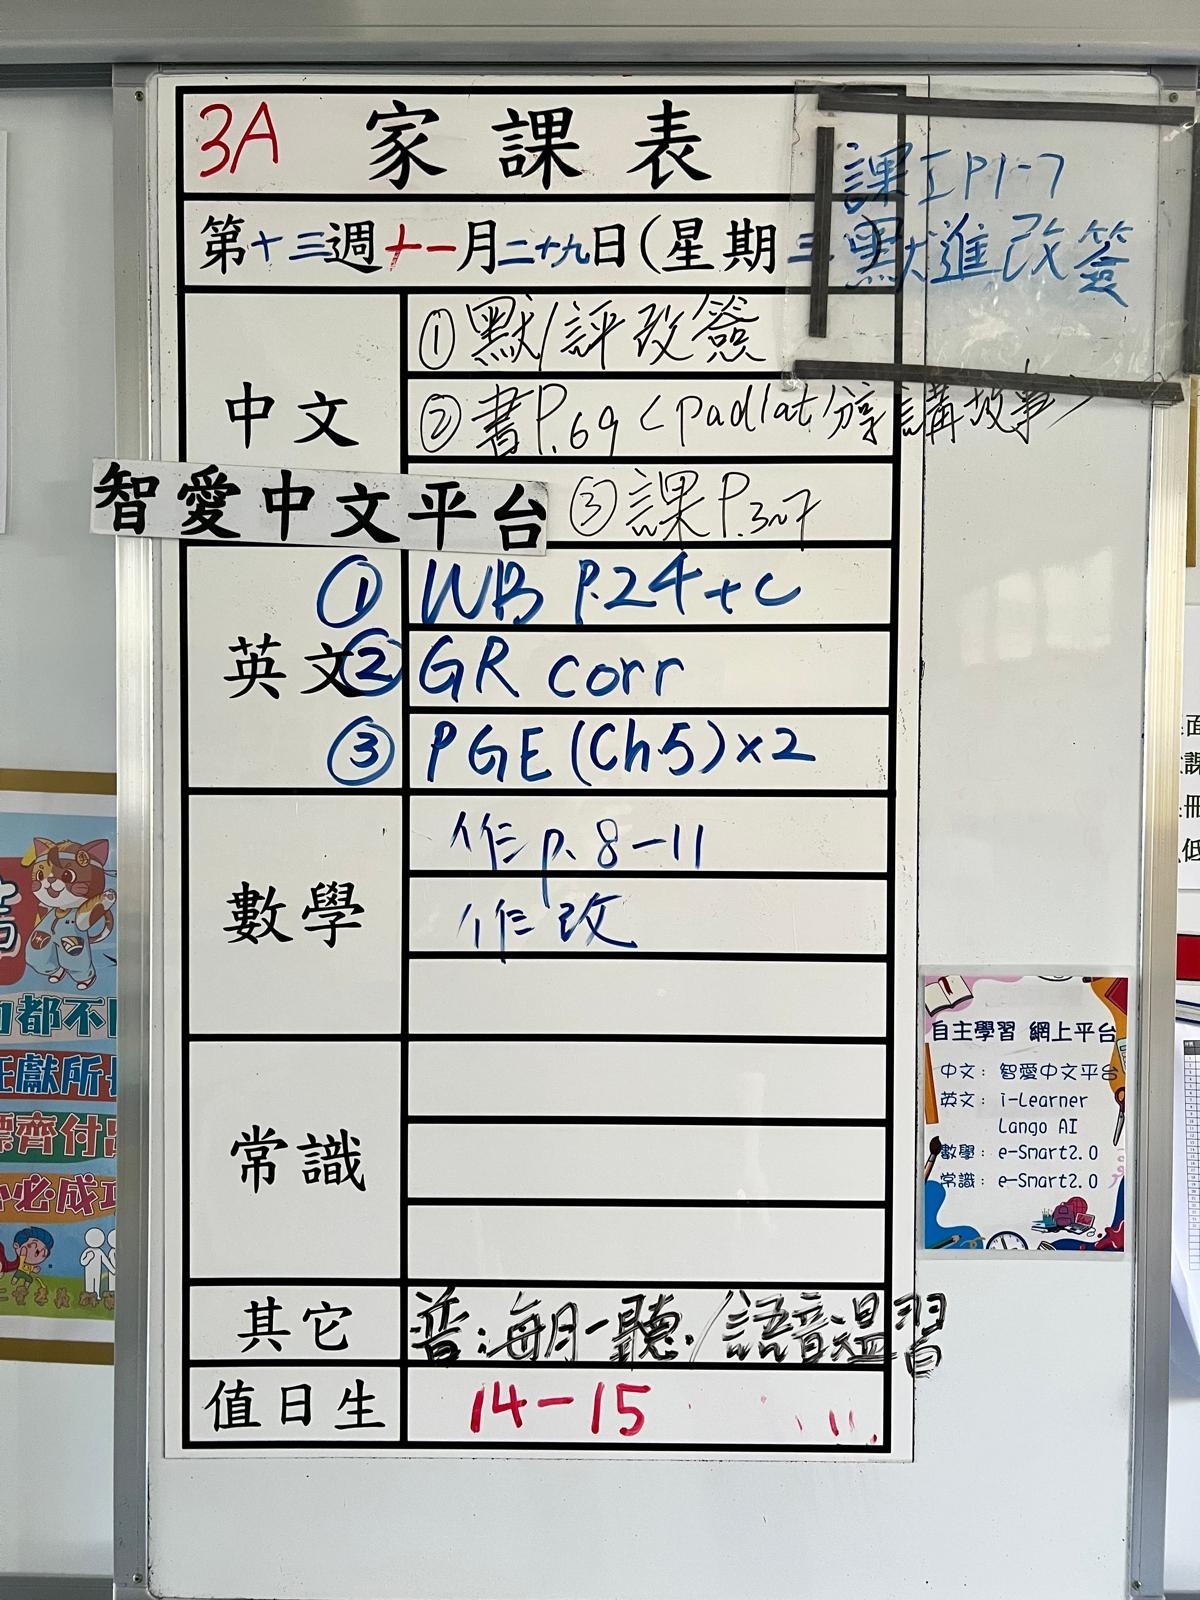 3A 家課表
課工P1-7
默進改簽
第十三週十一月二十九日(星期三)
中文
①默/評改簽
②書P.69<padlat分享講故事>
智愛中文平台
③課P.3~7
英文
①WB P.24+c
②GR corr
③PGE(Ch5)x2
數學
作p.8-11
作改
常識
其它
普:每月一聽/語音溫習
值日生
14-15
自主學習 網上平台
中文: 智愛中文平台
英文: i-Learner
Lango AI
數學: e-Smart2.0
常識: e-Smart2.0
都不
獻所
齊付出
必成功